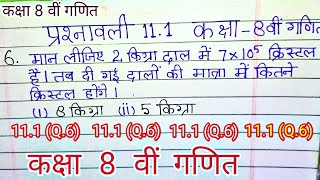 कक्षा 8 वीं गणित
प्रश्नावली 11.1 कक्षा-8वीं गणित
6. मान लीजिए 2 किग्रा दाल में 7×10⁵ क्रिस्टल
है। तब दी गई दालों की मात्रा में कितने
क्रिस्टल होंगे।
(i) 8 किग्रा (ii) 5 किग्रा
11.1 (Q.6) 11.1 (Q.6) 11.1 (Q.6) 11.1 (Q.6)
कक्षा 8 वीं गणित